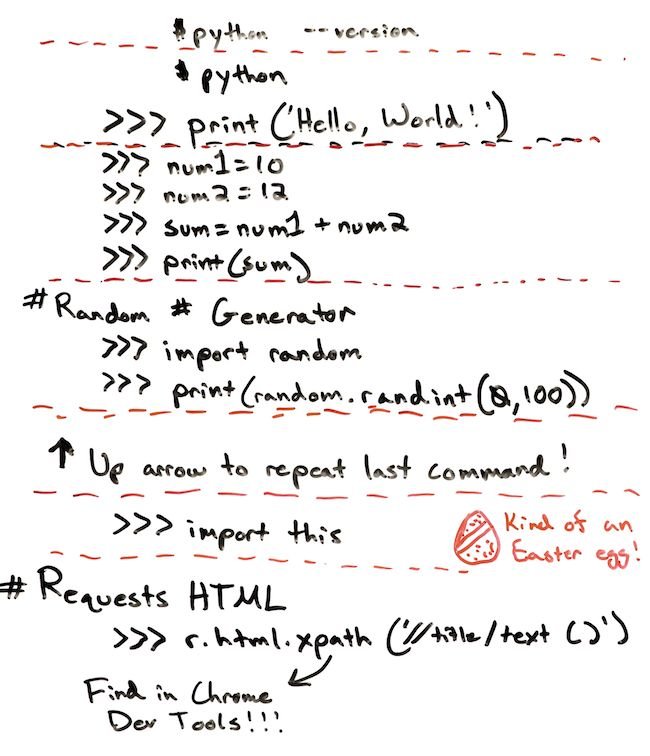 $ python --version
$ python
>>> print ('Hello, World!')
>>> num1=10
>>> num2=12
>>> sum=num1 + num2
>>> print(sum)
# Random # Generator
>>> import random
>>> print(random.randint(0,100))
↑ Up arrow to repeat last command!
>>> import this
Kind of an
Easter egg!
# Requests HTML
>>> r.html.xpath ('//title/text ()')
Find in Chrome
Dev Tools!!!